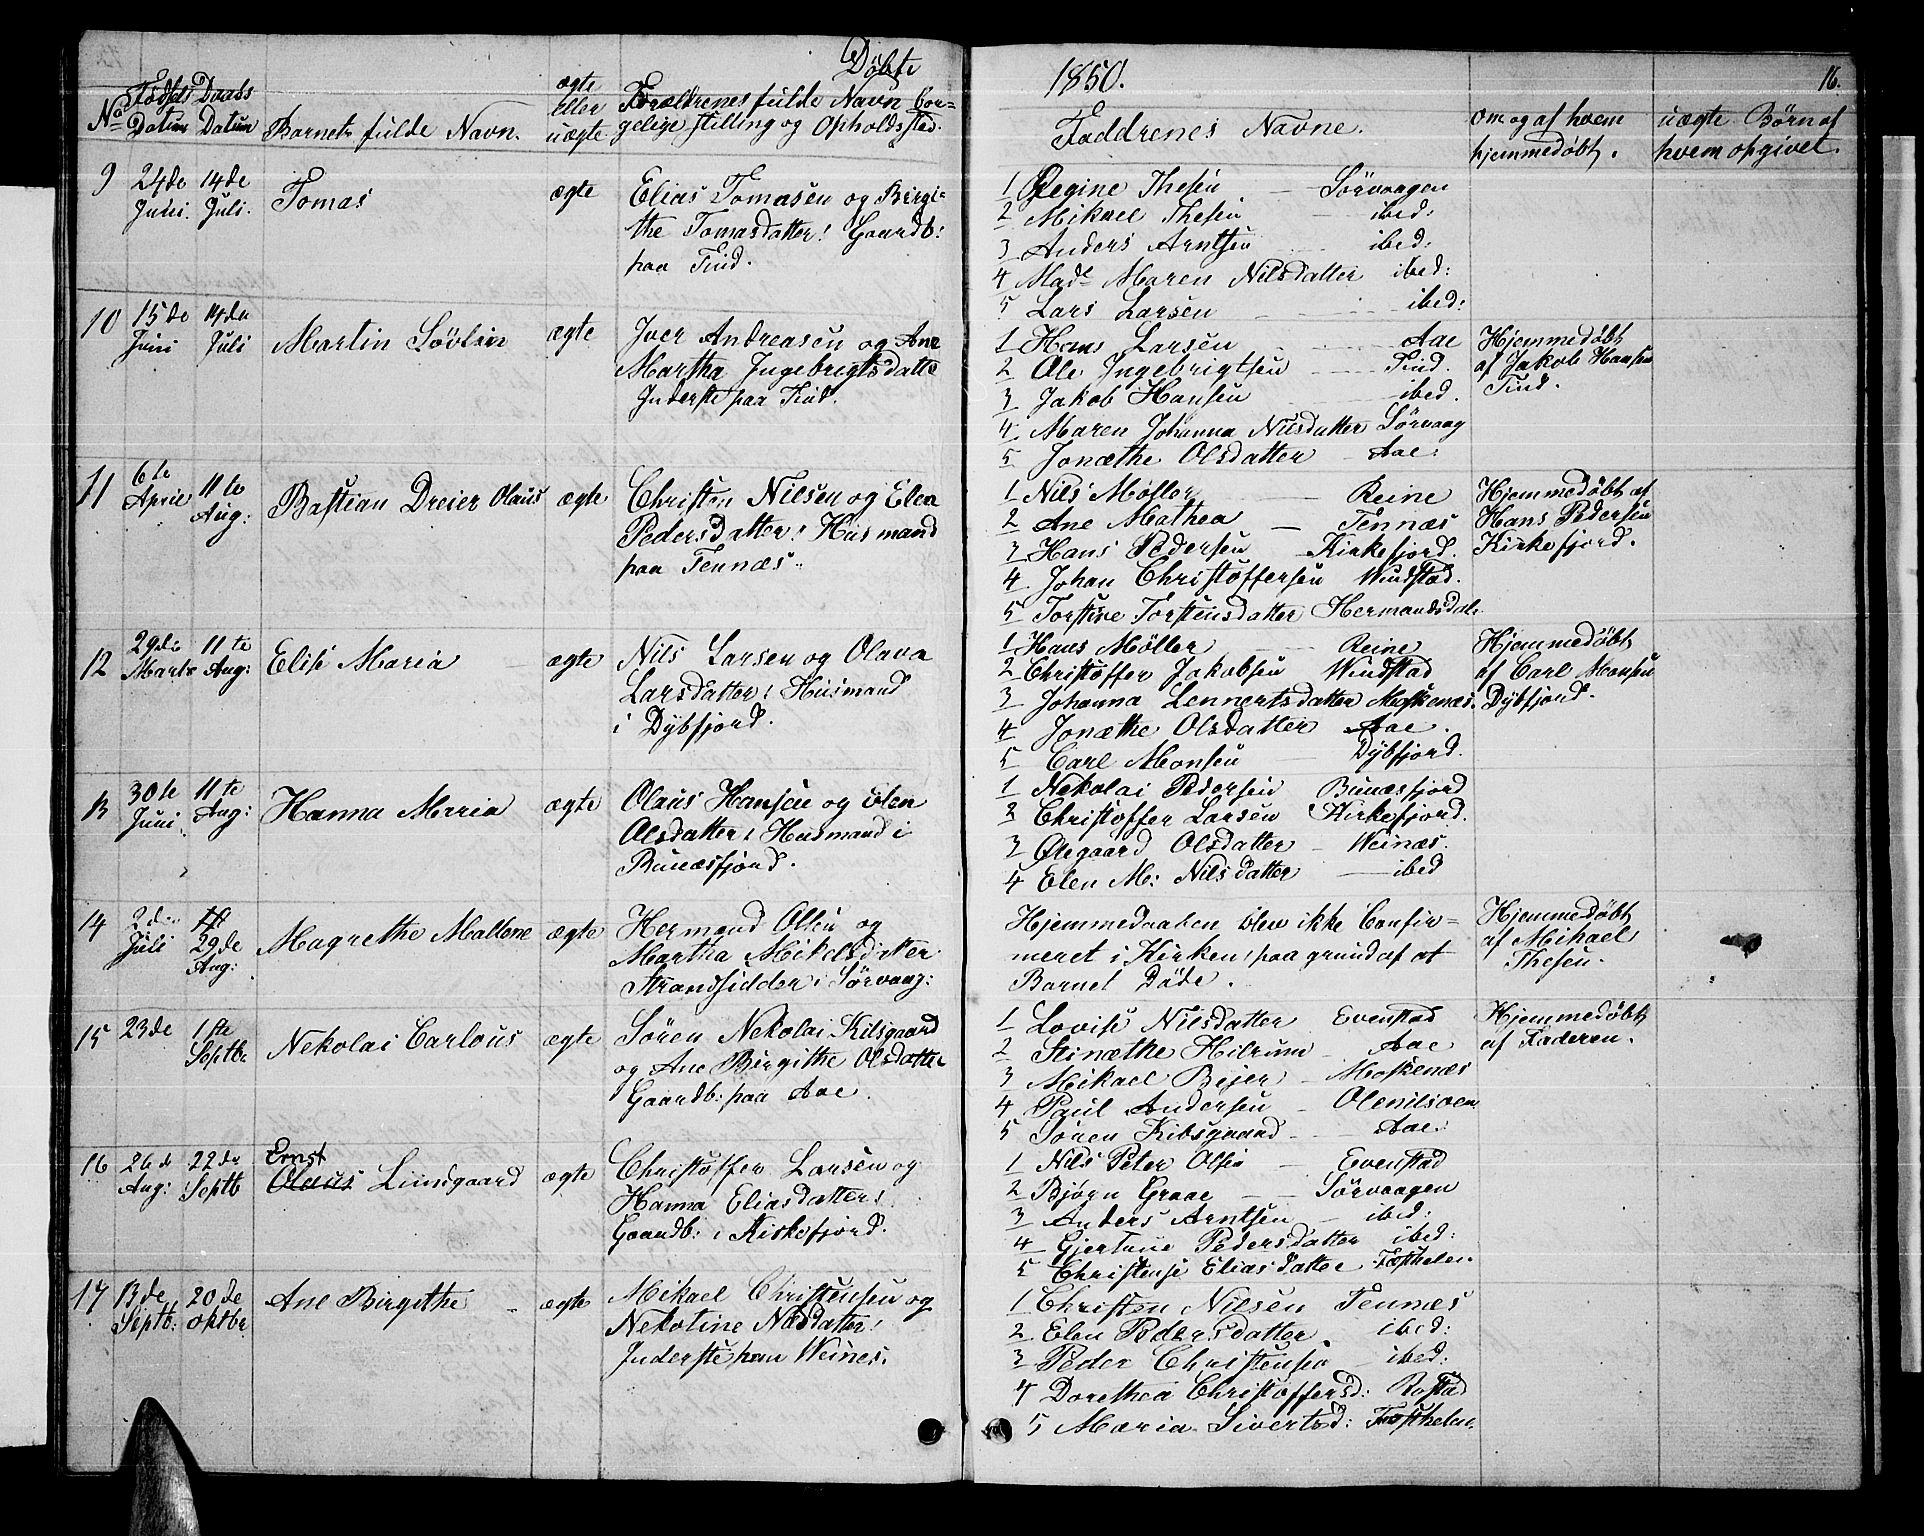 Døbte
1850.
16.
No Fødsels Datum Daabs Datum Barnets fulde Navn. ægte eller uægte Forældrenes fulde Navn borgelige stilling og Opholdssted.
Faddrenes Navne.
om og af hvem hjemmedøbt.
uægte Børn af hvem opgivet.
9 24de Juni. 14de Juli. Tomas ægte
Elias Tomasen og Birgi-
the Tomasdatter! Gaardb:
paa Tind.
1 Regine Thesen Sörvaagen
2 Mikael Thesen ibed:
3 Anders Arntsen ibed:
4 Madl Maren Nilsdatter ibed:
5 Lars Larsen ibed:
10 15de Juni 14de Juli Martin Lövlin ægte
Iver Andreasen og Ane
Martha Ingebrigtsdatte
Inderste paa Tind.
1 Hans Larsen Aae
2 Ole Ingebrigtsen Tind.
3 Jakob Hansen ibed.
4 Maren Johanna Nilsdatter Sörvaag
5 Jonæthe Olsdatter Aae.
Hjemmedøbt
af Jakob Hansen
Tind.
11 6te April 11te Aug: Bastian Dreier Olaus ægte
Christen Nilsen og Elen
Pedersdatter! Husmand
paa Tennæs.
1 Nils Møller Reine
2 Ane Mathea Tennæs
3 Hans Pedersen Kirkefjord.
4 Johan Christoffersen Windstad.
5 Torstine Torstensdatter Hermandsdal.
Hjemmedøbt af
Hans Pedersen
Kirkefjord.
12 29de Marts 11te Aug: Elise Maria ægte
Nils Larsen og Olava
Larsdatter! Husmand
i Dybfjord.
1 Hans Møller Reine
2 Christoffer Jakobsen Windstad
3 Johanna Lennertsdatter Moskenæs.
4 Jonæthe Olsdatter Aae.
5 Carl Monsen Dybfjord.
Hjemmedøbt
af Carl Monsen
Dybfjord.
13 30te Juni 11te Aug: Hanna Maria ægte
Olaus Hansen og Elen
Olsdatter! Husmand i
Bunæsfjord.
1 Nekolai Pedersen Bunæsfjord
2 Christoffer Larsen Kirkefjord.
3 Olegaard Olsdatter Weinæs.
4 Elen M: Nilsdatter ibed
14 2den Juli 29de Aug: Magrethe Mallene ægte
Hermand Olsen og
Martha Mikelsdatter
Strandsidder i Sörvaag:
Hjemmedaaben blev ikke Confir-
meret i Kirken, paa grund af at
Barnet Døde.
Hjemmedøbt
af Mikael
Thesen.
15 23de 1ste Septbr Nekolai Carlous ægte
Sören Nekolai Kilsgaard
og Ane Birgithe Olsdatter
Gaardb: paa Aae.
1 Lovise Nilsdatter Evenstad
2 Stinæthe Hilrum Aae
3 Mikael Bejer Moskenæs
4 Paul Andersen Olenilsøen
5 Sören Kibsgaard Aae.
Hjemmedøbt
af Faderen.
16 26de Aug: 22de Septb Ernst Olaus Lundgaard ægte
Christoffer Larsen og
Hanna Eliasdatter!
Gaardb: i Kirkefjord.
1 Nils Peter Olsen Evenstad
2 Bjørn Graae Sörvaagen
3 Anders Arntsen ibed:
4 Gjertine Pedersdatter ibed:
5 Christense Eliasdatter Festhelen
17 13de Septb: 20de oktbr Ane Birgithe ægte
Mikael Christensen og
Nekoline Nilsdatter!
Inderste paa Weines.
1 Christen Nilsen Tennæs
2 Elen Pedersdatter ibed:
3 Peder Christensen ibed:
4 Dorethea Christoffersd: Rostad
5 Maria Sivertsd: Festhelen